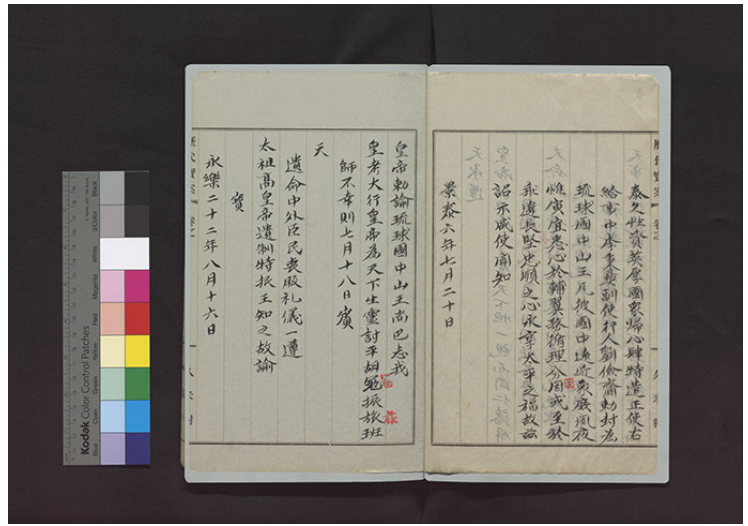 泰久性資英厚國衆歸心肆特遣正使右
給事中李秉彝副使行人劉儉齎勅封為
琉球國中山王凡彼國中遠近衆庶夙夜
惟寅宜悉心於輔翼務循理分罔或至於
乖違長堅忠順之心永寧太平之福故茲
詔示咸使周知
景泰六年七月二十日
皇帝勅諭琉球國中山王尚巴志我
皇考大行皇帝為天下生靈討平胡冦振旅班
師不幸則七月十八日賓
天
遺命中外臣民喪服礼儀一遵
太祖高皇帝遺制特報王知之故諭
寶
永樂二十二年八月十六日
Kodak Color Control Patches
Blue Cyan Green Yellow Red Magenta White 3/Color Black